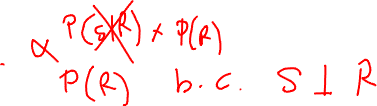 ∝ P(S|R) × P(R)
P(R) b.c. S ⊥ R